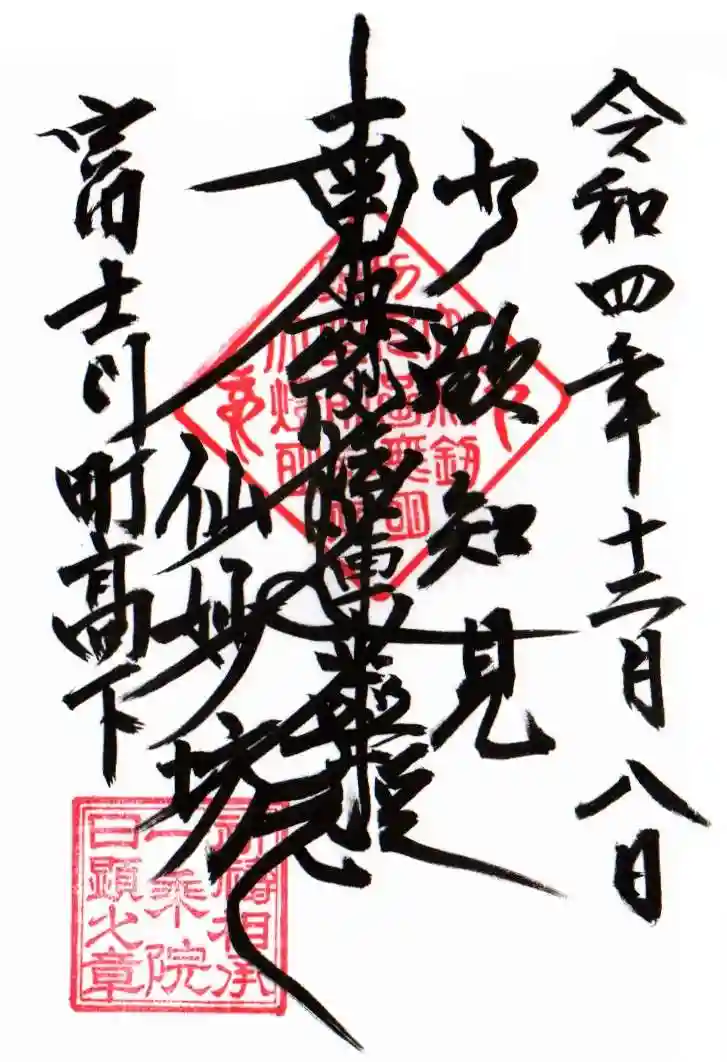 令和四年十二月八日
少欲知見
南無妙法蓮華経
仙妙坊
富士川町高下
祈祷相承
一乗院
日顕之章